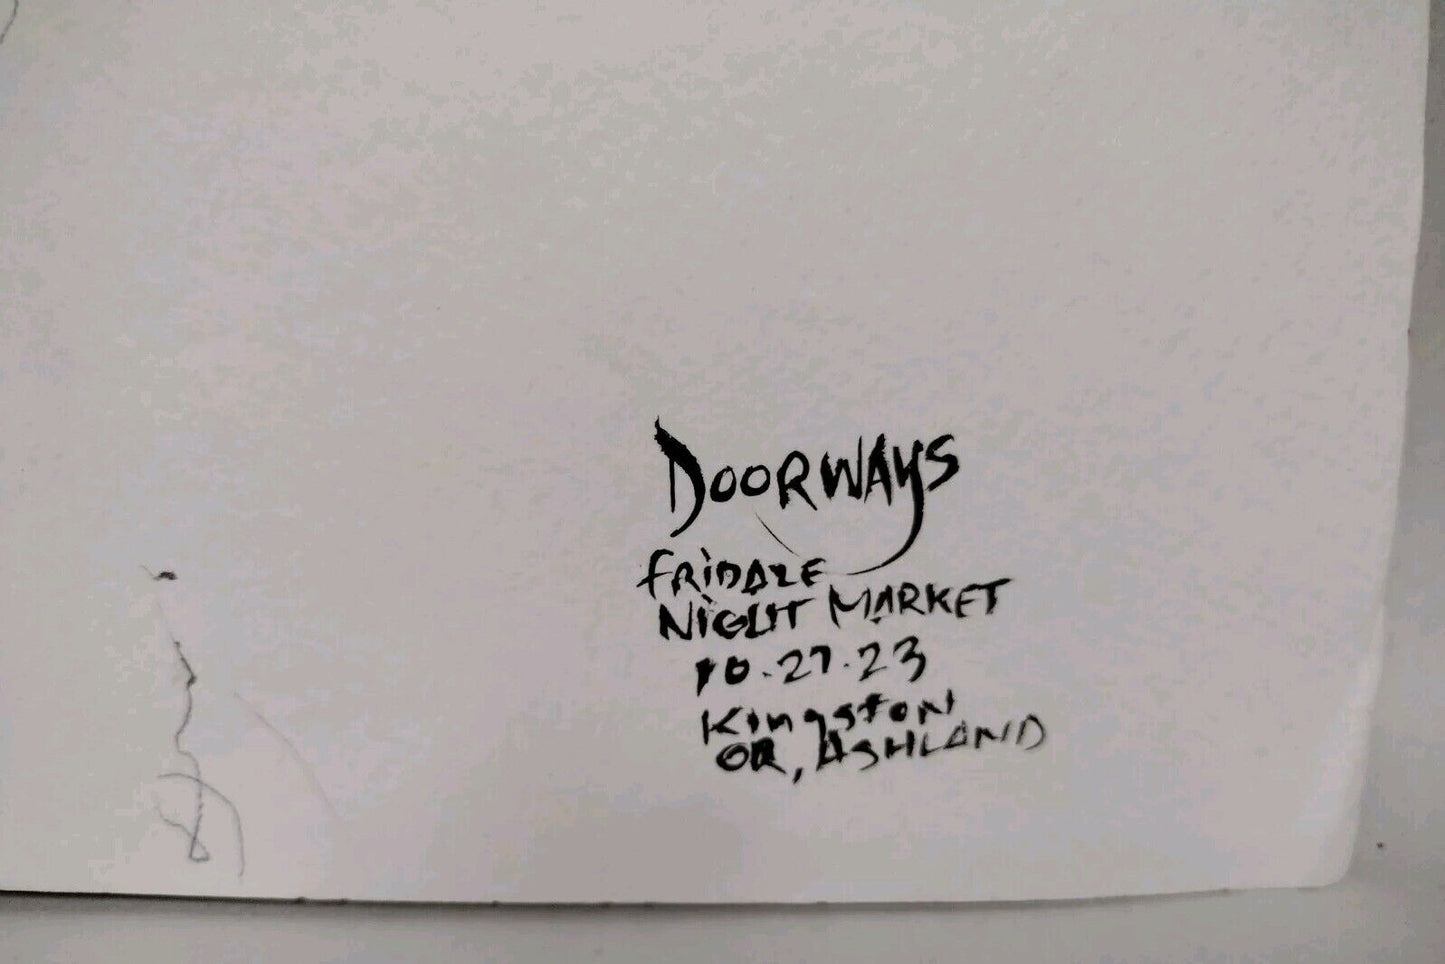 DOORWAYS
FRIDAZE
NIGHT MARKET
10.27.23
Kingston
OR, ASHLAND